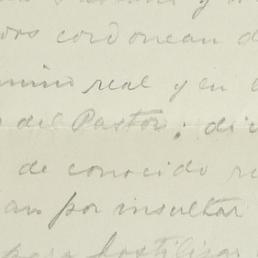 y
cordonean d
mino real y en
del Pastor; di
de conocido
an por insultar
para hostilizar